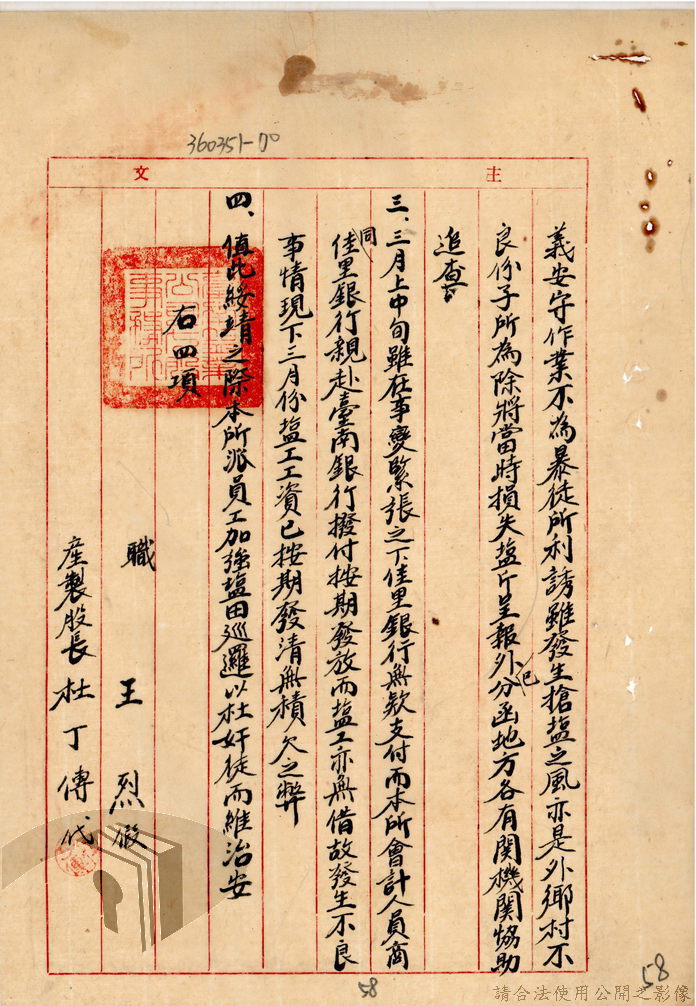 360351-70
主文
義安守作業不為暴徒所利誘雖發生搶塩之風亦是外鄉村不
良份子所為除將當時損失塩斤呈報外已分函地方各有関機関恊助
追查
三、三月上中旬雖在事變緊張之下佳里銀行無欵支付而本所會計人員商
同佳里銀行親赴臺南銀行撥付按期發放而塩工亦無借故發生不良
事情現下三月份塩工工資已按期發清無積欠之弊
四、值此綏靖之際本所派員工加強塩田巡邏以杜奸徒而維治安
右四項
職 王烈 假
產製股長杜丁傳代
58
58
請合法使用公開之影像